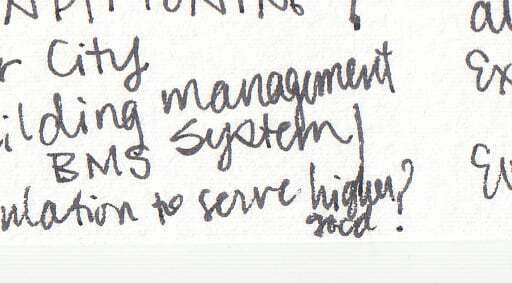 r City
ilding management
system
BMS
ulation to serve higher?
good